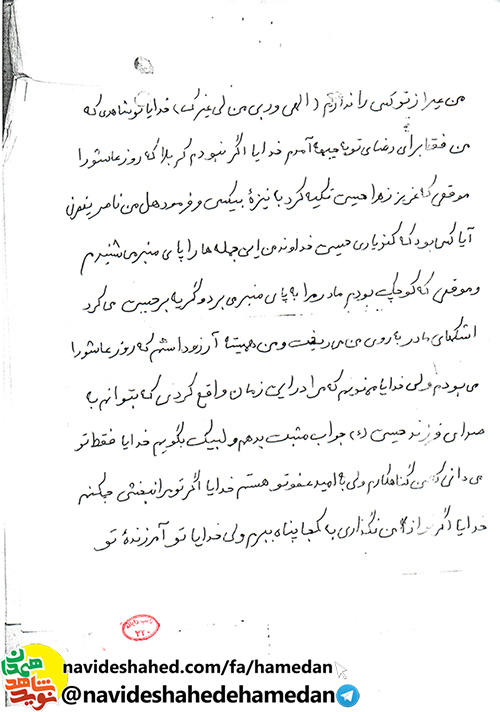 من غیر از تو کسی را ندارم (الهی و ربی من لی غیرک) خدایا تو شاهدی که
من فقط برای رضای تو به جبهه آمدم خدایا اگر نبودم کربلا که روز عاشورا
موقعی که عزیز زهرا حسین تکیه کرد با نیزهٔ بیکسی و فرمود هل من ناصر ینصرنی
آیا کسی بود که کند یاری حسین خداوند من این جمله ها را پای منبر می شنیدم
و موقعی که کوچک بودم مادر مرا به پای منبر می برد و گریه بر حسین می کرد
اشکهای مادر به روی من می ریخت و من همیشه آرزو داشتم که روز عاشورا
می بودم ولی خدایا ممنونم که مرا در این زمان واقع کردی که بتوانم به
صدای فرزند حسین جواب مثبت بدهم و لبیک بگویم خدایا فقط تو
می دانی که من گناهکارم ولی به امید عفو تو هستم خدایا اگر تو مرا نبخشی چکنم
خدایا اگر تو از من نگذری به کجا پناه ببرم ولی خدایا تو آمرزندهٔ تو
۷۲۰
نوید شاهد همدان
navideshahed.com/fa/hamedan
@navideshahedehamedan